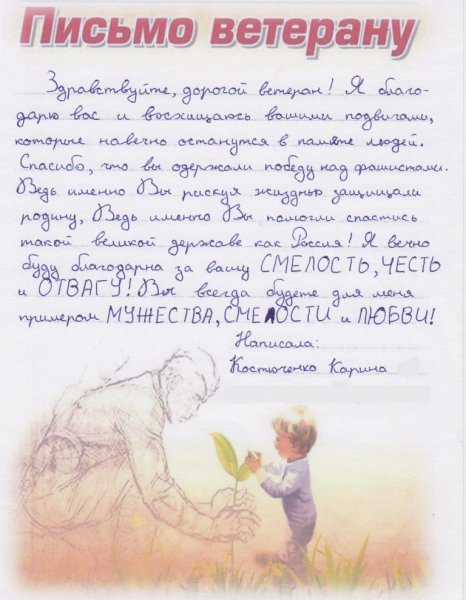 Письмо ветерану
Здравствуйте, дорогой ветеран! Я благо-
дарю вас и восхищаюсь вашими подвигами,
которые навечно останутся в памяте людей.
Спасибо, что вы одержали победу над фашистами.
Ведь именно Вы рискуя жизнью защищали
родину, Ведь именно Вы помогли спастись
такой великой державе как Россия! Я вечно
буду благодарна за вашу СМЕЛОСТЬ, ЧЕСТЬ
и ОТВАГУ! Вы всегда будете для меня
примером МУЖЕСТВА, СМЕЛОСТИ и ЛЮБВИ!
Написала:
Костюченко Карина